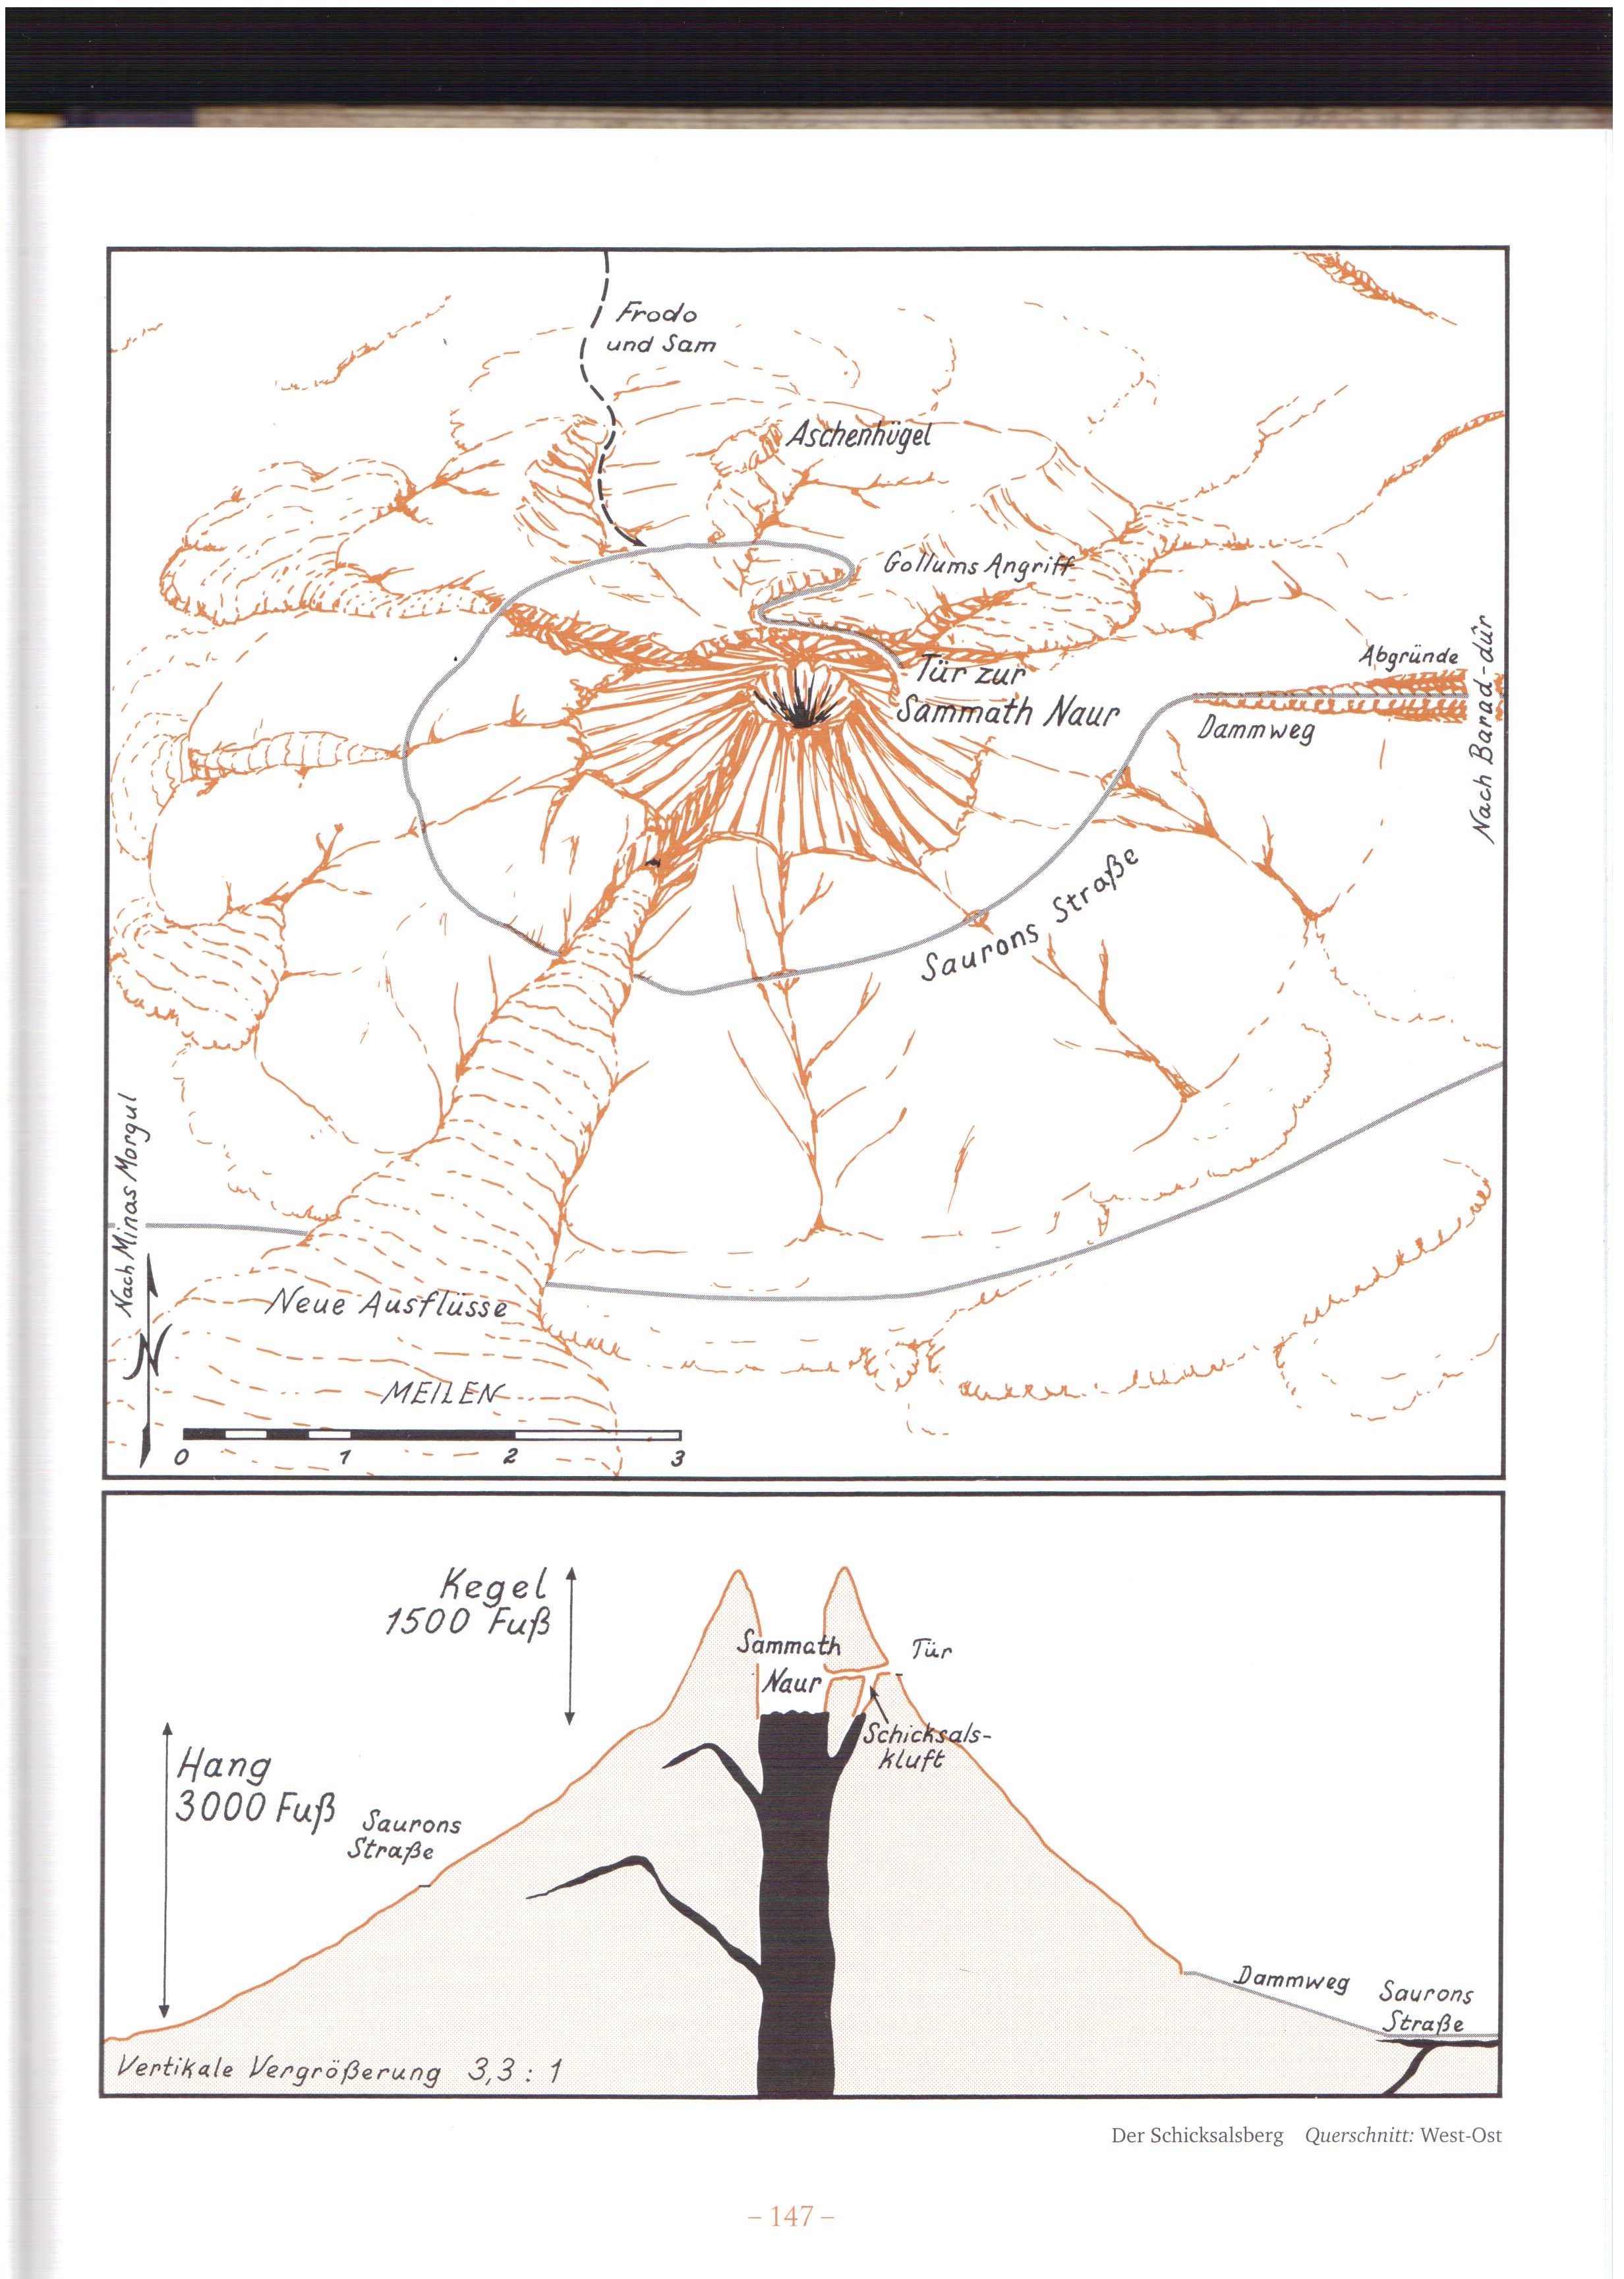 Frodo
und Sam
Aschenhügel
Gollums Angriff
Tür zur
Sammath Naur
Abgründe
Dammweg
Nach Barad-dûr
Saurons Straße
Nach Minas Morgul
Neue Ausflüsse
N
MEILEN
0 1 2 3
Kegel
1500 Fuß
Sammath
Naur
Tür
Schicksals-
kluft
Hang
3000 Fuß
Saurons
Straße
Dammweg
Saurons
Straße
Vertikale Vergrößerung 3,3 : 1
Der Schicksalsberg Querschnitt: West-Ost
– 147 –